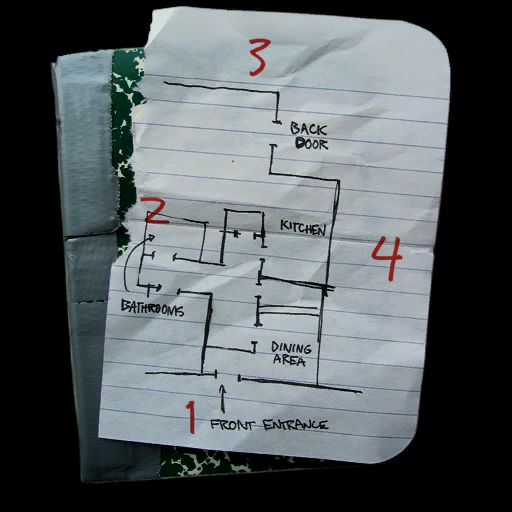 3
BACK
DOOR
2
KITCHEN
4
BATHROOMS
DINING
AREA
1
FRONT ENTRANCE